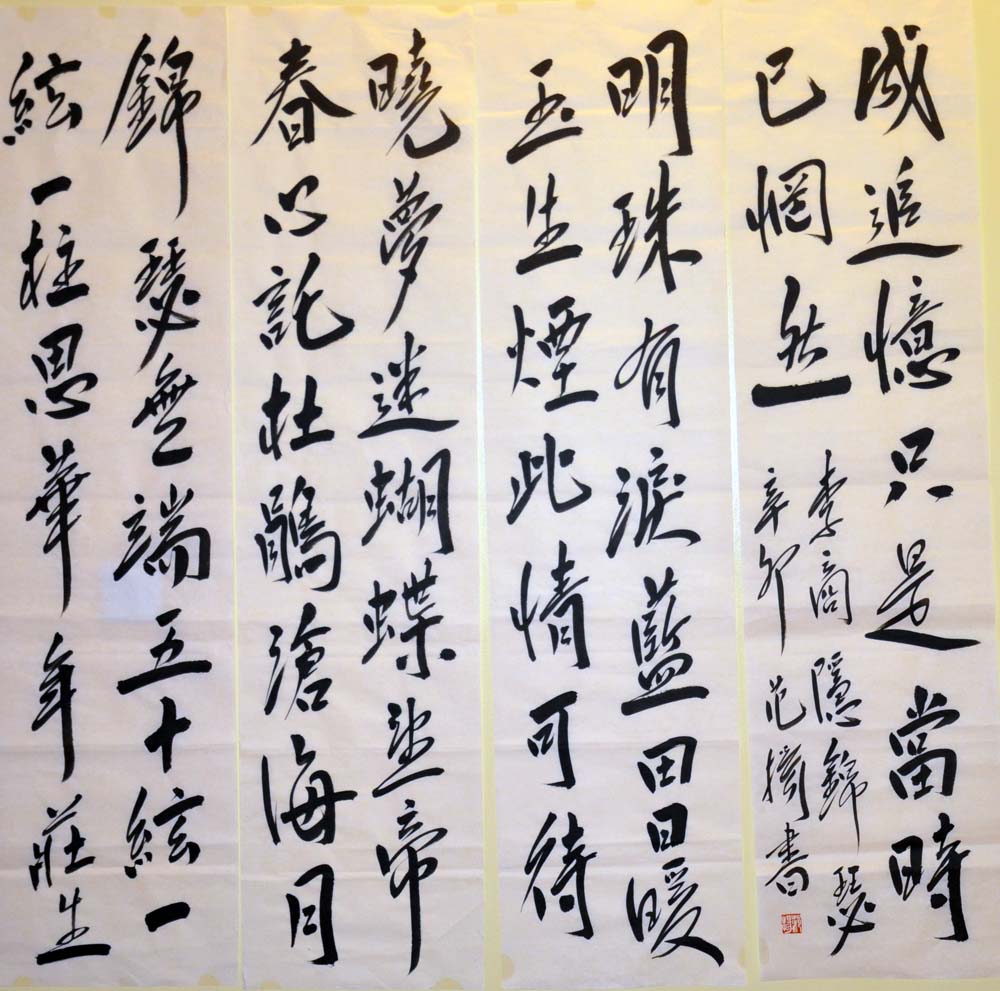 錦瑟無端五十絃一
絃一柱思華年莊生
曉夢迷蝴蝶望帝
春心託杜鵑滄海月
明珠有淚藍田日暖
玉生煙此情可待
成追憶只是當時
已惘然
李商隱錦瑟
辛卯范書